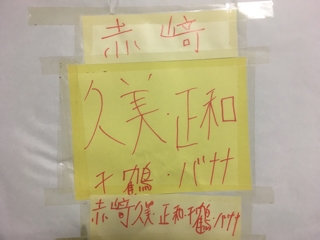 赤﨑
久美・正和
才鶴・バナナ
赤﨑久美・正和・才鶴・バナナ